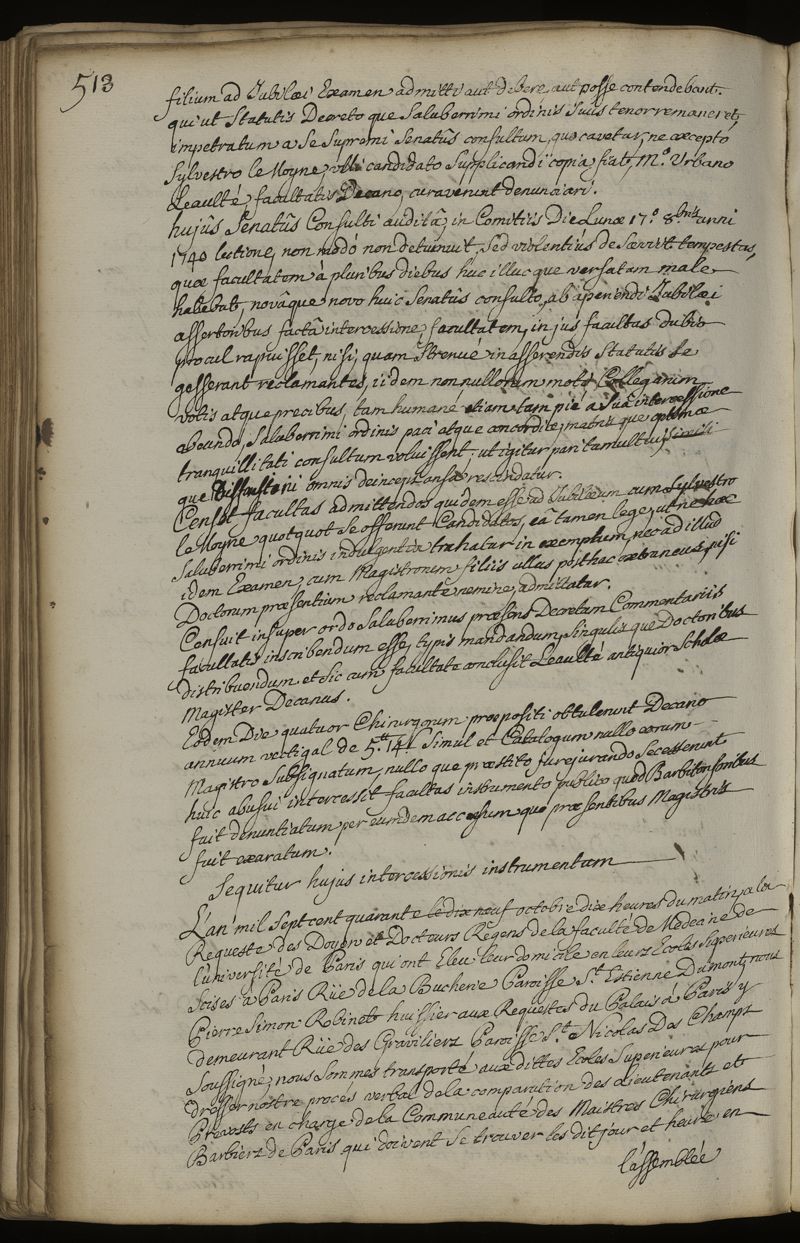 513
filium ad Jubilæi Examen admitti aut debere, aut posse contendebant.
qui ut Statutis Decreto que Saluberrimi ordinis Suus tenor remaneret,
impetratum a Se Supremi Senatûs consultum, quo cavetur, ne excepto
Sylvestro le Moyne, ulli candidato Supplicandi copia fiat, M.º Urbano
Leaulté facultatis Decano, curaverunt denunciari.
hujûs Senatûs Consulti auditâ, in Comitiis Die Lunæ 17.º 8.bris anni
1740 lectione, non modó non detumuit, Sed violentiús desæviit tempestas,
quæ facultatem á pluribus diebus huc illuc que versatam male
habebat, novâque novo huic Senatûs consulto, ab aperiendi Jubilæi
assertoribus factâ intercessione, facultatem, in jus facultas dubio
procul rapuisset, nisi, quam Strenué in asserendis Statutis Se
gesserant reclamantes, iidem nonnullorum moti Collegarum
votis atque precibus, tam humané etiam tam pié a Suâ intercessione
abeundo, Saluberrimi ordinis paci atque concordiæ, matris que optimæ
tranquillitati consultum voluissent. ut igitur pari tamultui,
que Dissentioni omnis deinceps ansa rescindatur.
Censet facultas admittendos quidem esse ad Jubilæum cum Sylvestro
le Moyne quotquot Se offerunt Candidatos, eâ tamen lege, ut ne hæc
Saluberrimi ordinis indulgentia trahatur in exemplum, nec ad illud
idem Examen, cum Magistrorum filiis ullus posthac extraneus, nisi
Doctorum præsentium reclamante nemine, admittatur.
Censuit insuper ordo Saluberrimus præsens Decretum Commentariis
facultatis inscribendum esse, typis mandandum, Singulis que Doctoribus
distribuendum et Sic cum facultate conclusit Leaulté antiquior Scholæ
Magister Decanus.
Eodem Die quatuor Chirurgorum præpositi obtulerunt Decano
annuum vectigal de 5.tt 14.s Simul et Catalogum nullo eorum
Magistro Subsignatum, nullo que præstito jurejurando Secesserunt
huic abusui intercessit facultas instrumento publico quod Barbitonsoribus
fuit denuntiatum per eumdem accensum quo præsentibus Magistris
fuit exaratum.
Sequitur hujus intercessionis instrumentum
L'an mil Sept cent quarante le dix neuf octobre dix heures du matin, a la
Requeste des Doyen et Docteurs Régens de la faculté de Medecine de
l'université de Paris qui ont Eleu leur domicile en leurs Ecoles Superieures
Scises a Paris Rüe de la Bucherie Paroisse S.t Estienne Dumont, nous
Pierre Simon Robinet huissier aux Requestes du Palais á Paris y
demeurant Rüe des Gravilierz Paroisse S.t Nicolas Des Champs
Soussigné, nous Sommes transporté aux dittes Ecoles Superieures pour
dresser nostre procés verbal de la comparution des Lieutenant et
Prevosts en charge de la Communeauté des Maistres Chirurgiens
Barbierz de Paris qui doivent Se trouver les dit jour et heure en
l'assemblée